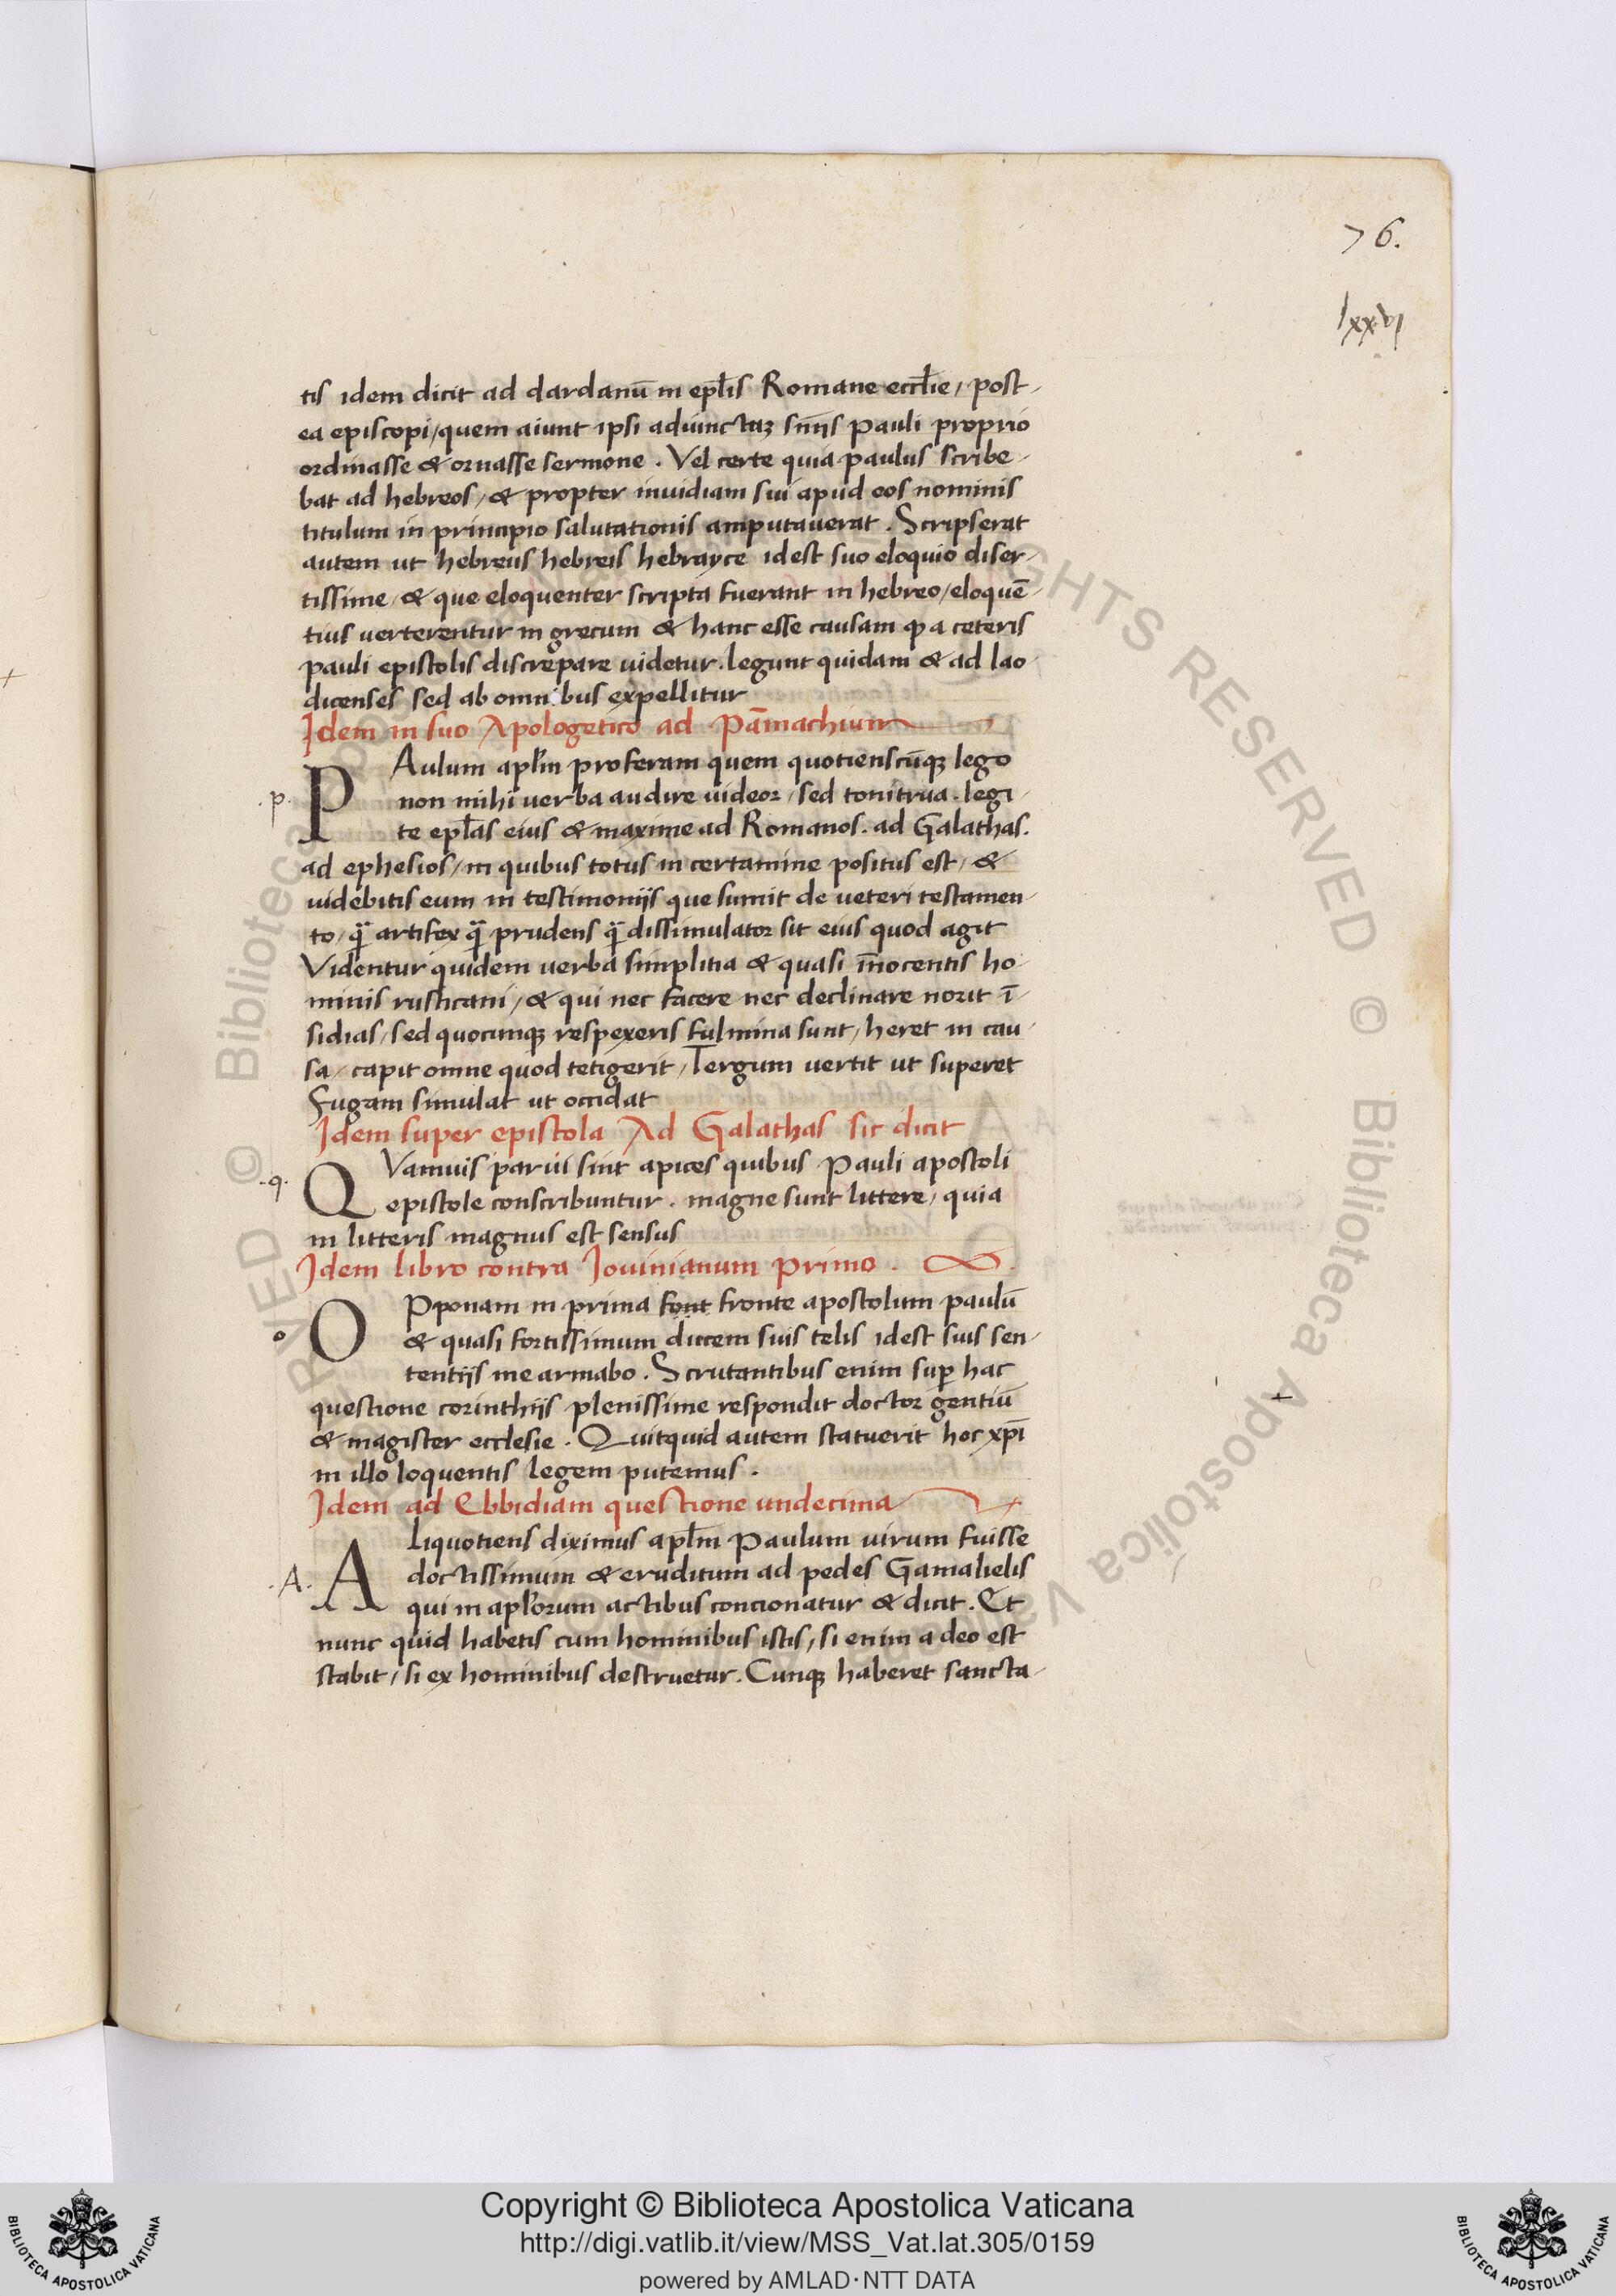 76.
lxxvi
tis idem dicit ad dardanū in epl̄is Romane eccl̄ie / post-
ea episcopi / quem aiunt ipsi adiunctaʒ sn̄iis Pauli proprio
ordinasse & ornasse sermone . Vel certe quia paulus scribe-
bat ad hebreos / & propter inuidiam sui apud eos nominis
titulum in principio salutationis amputauerat . Scripserat
autem ut hebreus hebreis hebrayce idest suo eloquio diser-
tissime / & que eloquenter scripta fuerant in hebreo / eloquē-
tius uerterentur in grecum & hanc esse causam ꝙ a ceteris
pauli epistolis discrepare uidetur . legunt quidam & ad lao-
dicenses sed ab omnibus expellitur
Idem in suo Apologetico ad Pām̄achium
.p.
PAulum apl̄m proferam quem quotienscūqʒ lego
non mihi uerba audire uideor / sed tonitrua . legi-
te epl̄as eius & maxime ad Romanos . ad Galathas .
ad ephesios / in quibus totus in certamine positus est / &
uidebitis eum in testimoniis que sumit de ueteri testamen-
to / q̄ artifex q̄ prudens q̄ dissimulator sit eius quod agit
Videntur quidem uerba simplitia & quasi īnocentis ho-
minis rusticani / & qui nec facere nec declinare norit ī-
sidias / sed quocunqʒ respexeris fulmina sunt / heret in cau-
sa / capit omne quod tetigerit / Tergum uertit ut superet
Fugam simulat ut occidat
Idem super epistola Ad Galathas sic dicit
.q.
QVamuis parui sint apices quibus Pauli apostoli
epistole conscribuntur . magne sunt littere / quia
in litteris magnus est sensus
Idem libro contra Iouinianum primo .
o
OPponam in prima font fronte apostolum paulū
& quasi fortissimum ducem suis telis idest suis sen-
tentiis me armabo . Scrutantibus enim suꝑ hac
questione corinthiis plenissime respondit doctor gentiū
& magister ecclesie . Quitquid autem statuerit hoc xp̄i
in illo loquentis legem putemus .
Idem ad Ebbidiam questione undecima
.A.
ALiquotiens diximus apl̄m Paulum uirum fuisse
doctissimum & eruditum ad pedes Gamalielis
qui in apl̄orum actibus concionatur & dicit . Et
nunc quid habetis cum hominibus istis / si enim a deo est
stabit / si ex hominibus destruetur . Cunqʒ haberet sancta-
Copyright © Biblioteca Apostolica Vaticana
http://digi.vatlib.it/view/MSS_Vat.lat.305/0159
powered by AMLAD·NTT DATA
BIBLIOTECA APOSTOLICA VATICANA
BIBLIOTECA APOSTOLICA VATICANA